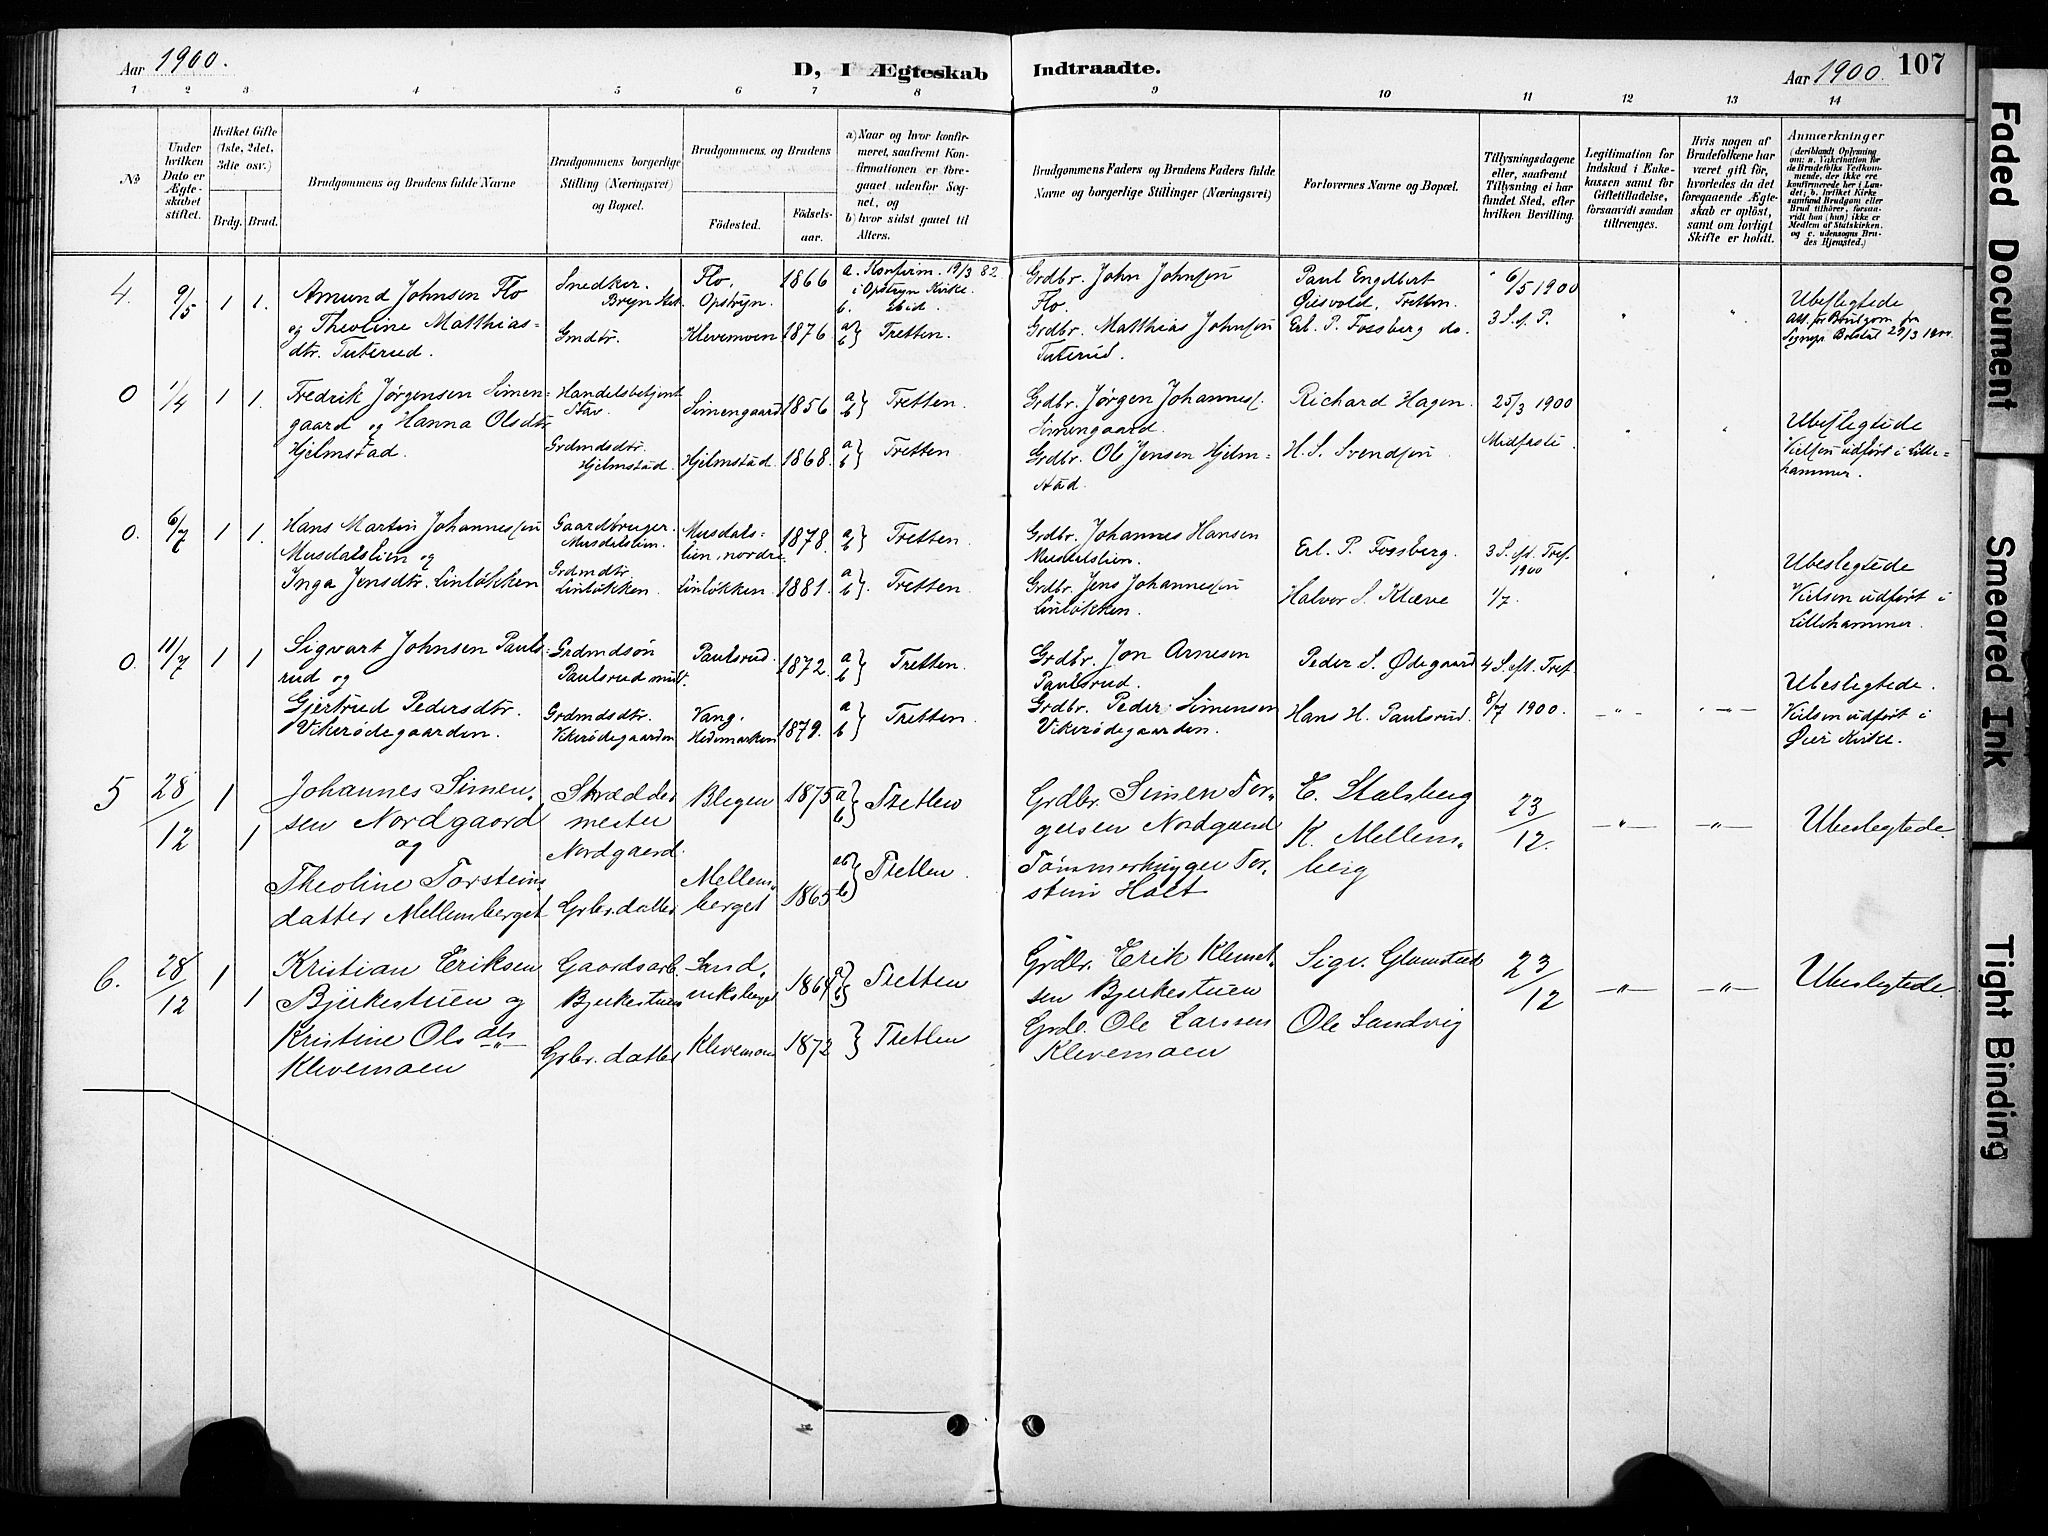 Aar 1900.
D, I Ægteskab Indtraadte.
Aar 1900. 107
1 2 3 4 5 6 7 8 9 10 11 12 13 14
No
Under hvilken Dato er Ægteskabet stiftet.
Hvilket Gifte (1ste, 2det, 3die osv.)
Brdg. Brud.
Brudgommens og Brudens fulde Navne
Brudgommens borgerlige Stilling (Næringsvei) og Bopæl.
Brudgommens og Brudens
Fødested.
Fødselsaar.
a) Naar og hvor konfirmeret, saafremt Konfirmationen er foregaaet udenfor Sognet, og
b) hvor sidst gaaet til Alters.
Brudgommens Faders og Brudens Faders fulde Navne og borgerlige Stillinger (Næringsvei)
Forlovernes Navne og Bopæl.
Tillysningsdagene eller, saafremt Tillysning ei har fundet Sted, efter hvilken Bevilling.
Legitimation for Indskud i Enkekassen samt for Giftetilladelse, forsaavidt saadan tiltrænges.
Hvis nogen af Brudefolkene har været gift før, hvorledes da det foregaaende Ægteskab er opløst, samt om lovligt Skifte er holdt.
Anmærkninger (deriblandt Oplysning om: a. Vakcination for de Brudefolks Vedkommende, der ikke ere konfirmerede her i Landet; b. hvilket Kirkesamfund Brudgom eller Brud tilhører, forsaavidt han (hun) ikke er Medlem af Statskirken, og c. udensogns Brudes Hjemsted.)
4. 9/5 1 1.
Amund Johnsen Flo
og Theoline Matthias=
dtr. Tuterud.
Snedker.
Gmdtr.
Flo,
Opstryn. 1866
Klevemoen 1876
a. Konfirm. 19/3 82
i Opstryn Kirke.
b. ibid.
a b } Tretten.
Grdbr. John Johnsen
Flo.
Grdbr. Matthias Johnsen
Tuterud.
Paul Engelbert
Gisvold, Tretten.
Erl. P. Fossberg do.
6/5 1900
3 S. e. P.
"
"
Ubeslegtede
Att. for Brudgom fra
29/3 1900.
0 1/4 1 1.
Fredrik Jørgensen Simen=
gaard og Hanna Olsdtr
Hjelmstad.
Handelsbetjent
Stav
Grdmdsdtr.
Hjelmstad.
Simengaard 1856
Hjelmstad. 1868.
a b } Tretten.
a b } Tretten.
Grdbr. Jørgen Johannes[s].
Simengaard.
Grdbr. Ole Jensen Hjelm=
stad.
Richard Hagen.
H. S. Svendsen.
25/3 1900
Midfaste.
"
"
Ubeslegtede
Vielsen udført i Lille=
hammer.
0. 6/7 1 1.
Hans Martin Johannessen
Musdalslien og
Inga Jensdtr. Linløkken
Gaardbruger.
Musdalslien.
Grdmdtr.
Linløkken.
Musdals=
lien, nordre 1878.
Linløkken. 1881.
a b } Tretten.
a b }. Tretten.
Grdbr. Johannes Hansen
Musdalslien.
Grdbr. Jens Johannessen
Linløkken.
Erl. P. Fossberg.
Halvor S. Klæve
3 S. eft. Tref.
1900
1/7.
"
"
Ubeslegtede
Vielsen udført i
Lillehammer.
0. 11/7 1 1
Sigvart Johnsen Pauls=
rud og
Gjertrud Pedersdtr.
Vikerødegaarden.
Grdmdsøn
Paulsrud midt.
Grdmdsdtr.
Vikerødegaarden
Paulsrud. 1872.
Vang.
Hedemarken 1879.
a b } Tretten.
a b } Tretten.
Grdbr. Jon Arnesen
Paulsrud.
Grdbr. Peder Simensen
Vikerødegaarden.
Peder S. Ødegaard
Hans H. Paulsrud.
4 S. eft. Tref.
8/7 1900.
— " —
— " —
Ubeslegtede.
Vielsen udført i
Øier Kirke.
5 28/12 1 1
Johannes Simen=
sen Nordgaard
og
Theoline Torsteins
datter Mellemberget
Skrædder
mester
Nordgaard.
Grbr. datter
Blegen 1875
Mellem=
berget 1865
a b } Tretten
a b } Tretten.
Grdbr. Simen Tor=
gersen Nordgaard
Tømmerhugger Tor=
stein Holt
E. Stalsberg
K. Mellem=
berg
23/12.
— " —
— " —
Ubeslegtede.
6. 28/12 1 1
Kristian Eriksen
Bjerkestuen og
Kristine Olsdtr
Klevemoen
Gaardsarb.
Bjerkestuen
Grbr. datter
Klevemoen 1872
1864
a b } Tretten
} Tretten
Grdbr. Erik Klemet=
sen Bjerkestuen
Grdb. Ole Larssen
Klevemoen
Sigv. Glomstad
Ole Sandvig
23/12
— " —
— " —
Ubeslegtede.
Faded Document
Smeared Ink
Tight Binding